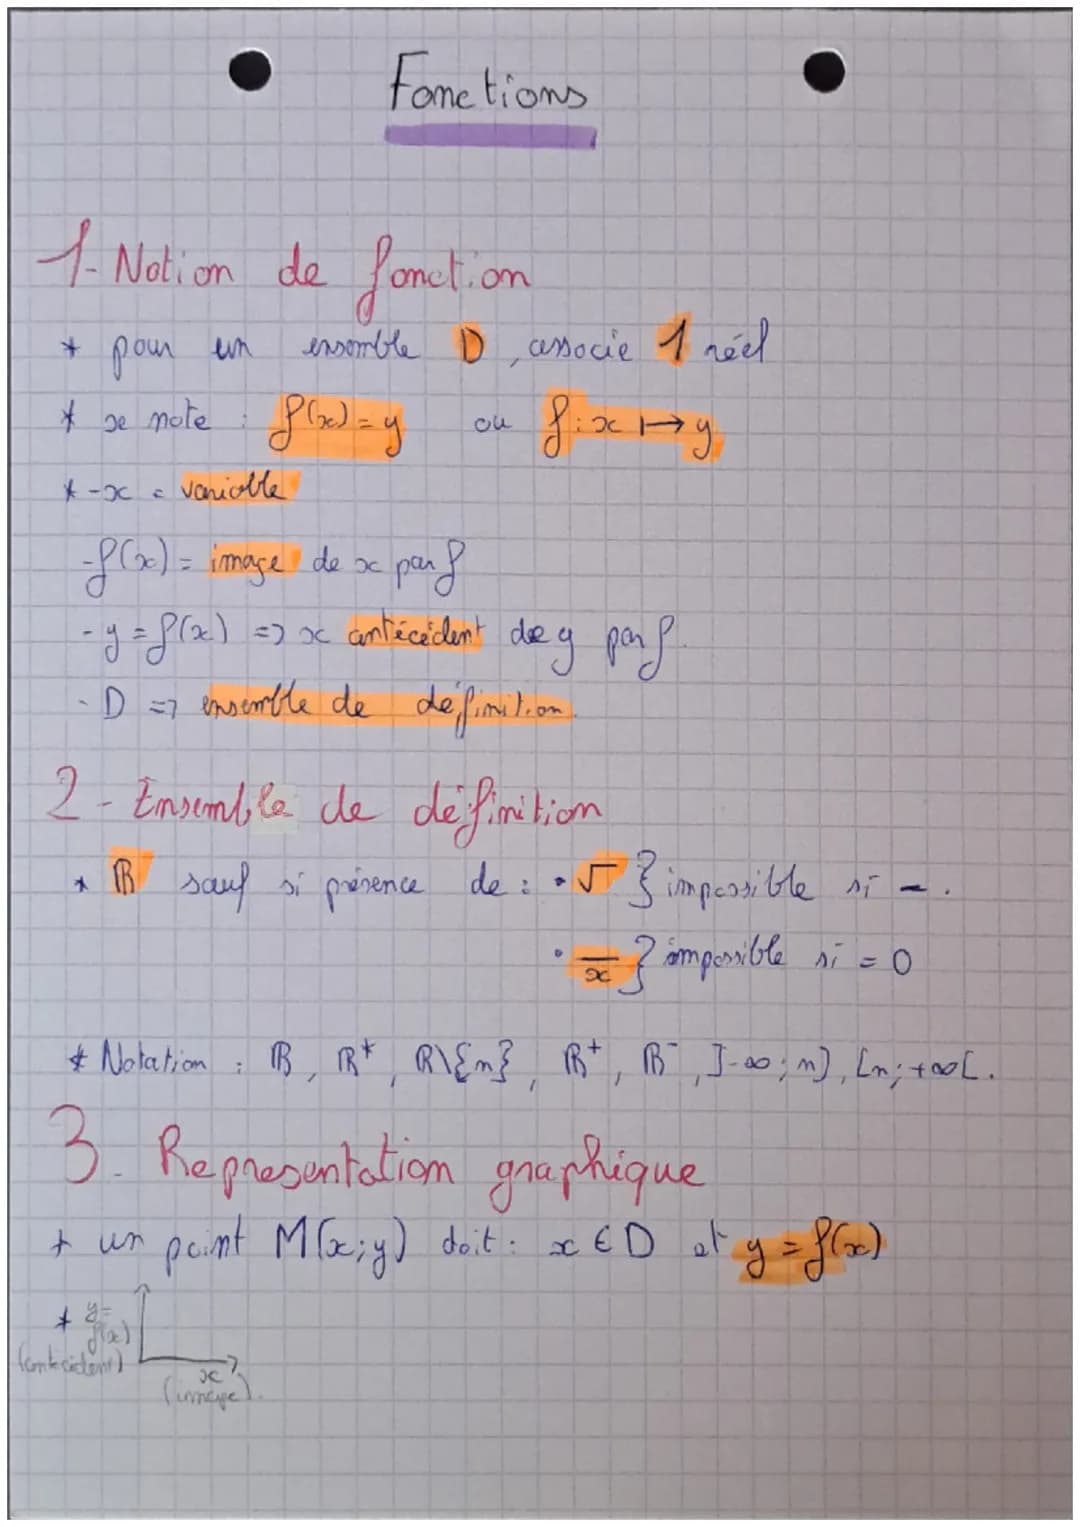 Fonctions
1- Notion de fonction
* pour un ensemble D, associe 1 réel
* se note : f(x) = y ou f : x ↦ y
* - x = variable
- f(x) = image de x par f
- y = f(x) => x antécédent de y par f.
- D => ensemble de définition.
2 - Ensemble de définition
* ℝ sauf si présence de : • √ } impossible si - .
• —/x } impossible si = 0
* Notation : ℝ, ℝ*, ℝ\{n}, ℝ⁺, ℝ⁻, ]-∞ ; n], [n ; +∞[.
3 - Representation graphique
* un point M(x;y) doit : x ∈ D et y = f(x)
* y =
f(x)
(antécédent)
x
(image).